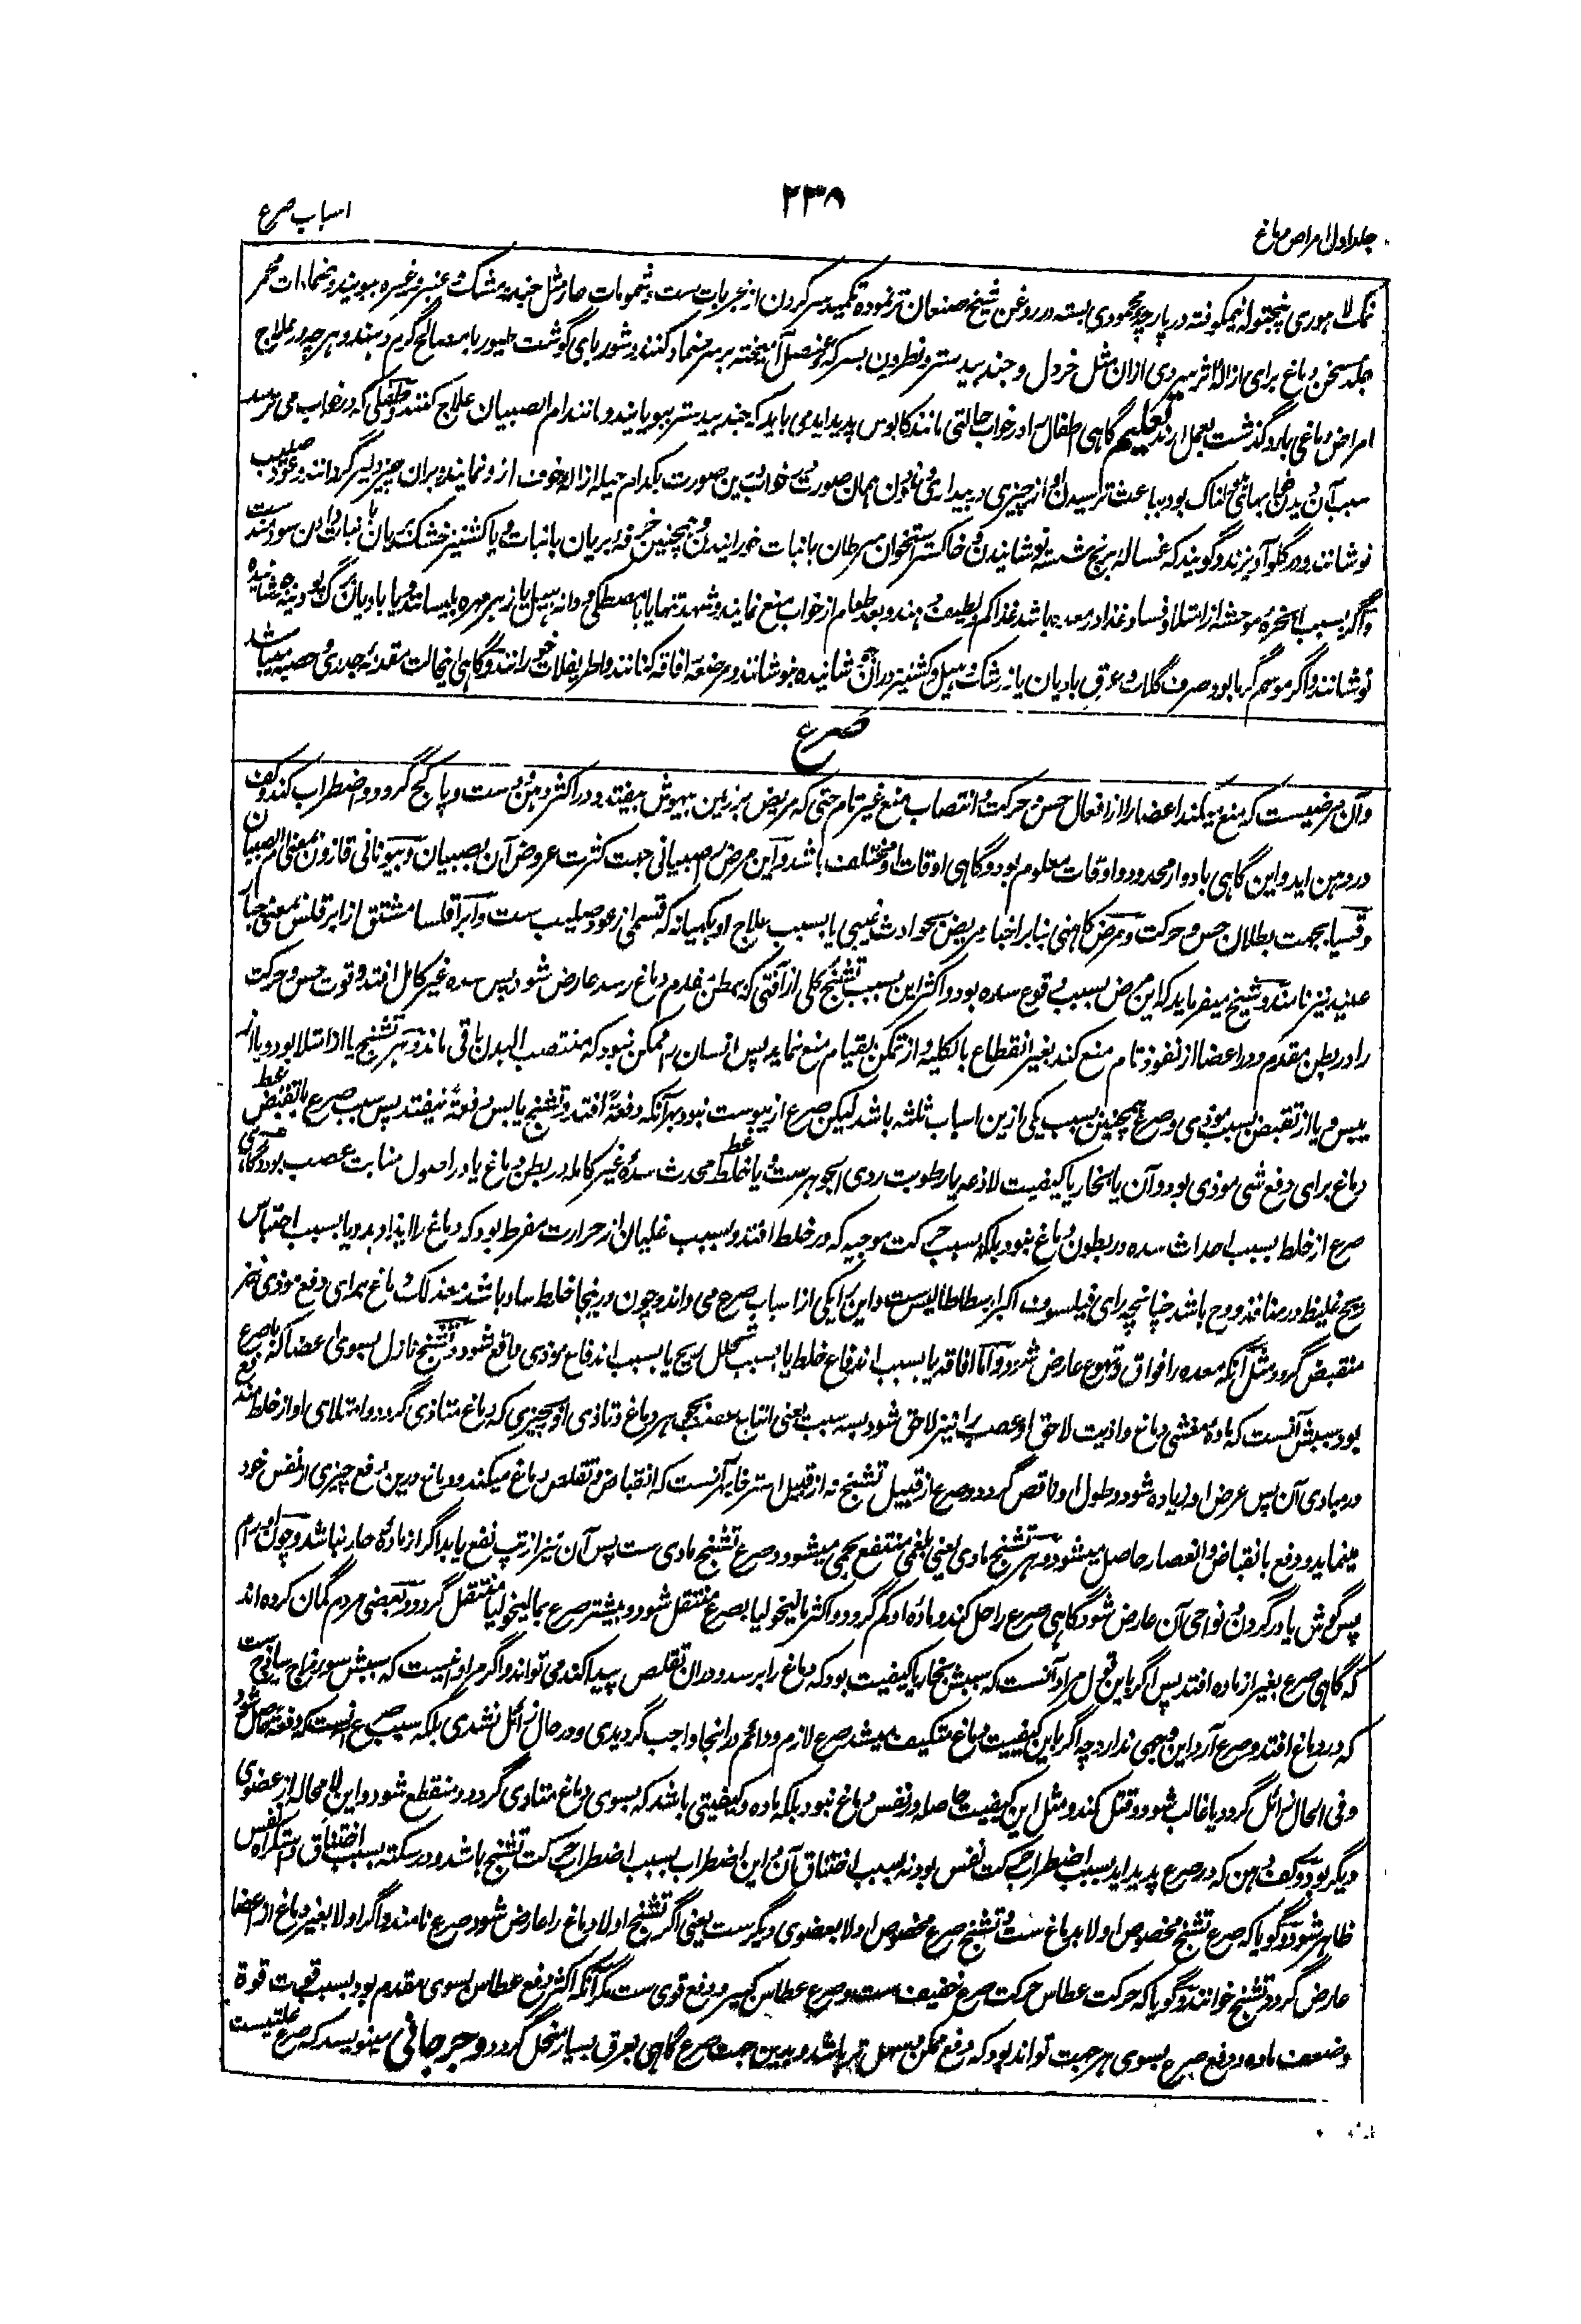 جلد اول امراض دماغ
۲۳۸
اسباب صرع
نمک لاهوری پنجتوله نیمکوفته در پارچه محمودی بسته در روغن شیخ صنعان تر نموده تکمید سر کردن از مجربات ست و شمومات حار مثل جندبیدستر مشک عنبر وغیره ببویند و ضمادات محمر
جلد سخن دماغ برای ازاله اثر سردی ازان مثل خردل و جندبیدستر و نطرون بسرکه عنصل آمیخته بر سر ضماد کنند و شوربای گوشت طیور با مصالح گرم دهند و هرچه در علاج
امراض دماغی بارد گذشت بعمل آرند تعلیم گاهی اطفال را در خواب حالتی مانند کابوس پدید آید می باید که جندبیدستر ببویانند و مانند ام الصبیان علاج کنند و طفلی که در خواب می ترسد
سبب آن دیدن خوابهای هولناک بود بباعث ترسیدن او از چیزی در بیداری و نمودن همان صورت در خواب درین صورت بکدام حیله ازاله خوف ازو نمایند و بران چیز دلیر گردانند و عود صلیب
نوشانند و در گلو آویزند و گویند که غساله برنج شسته نوشانیدن و خاکستر استخوان سرطان با نبات خورانیدن و همچنین خرفه بریان با نبات و یا کشنیز خشک بریان با نبات دادن سودمند ست
و اگر بسبب ابخره موحشه از امتلا و فساد غذا در معده باشد غذا کم و لطیف دهند و بعد طعام از خواب منع نمایند و شهد تنها یا با مصطگی و دانه هیل یا زهرمهره بلیسانند و یا بادیان برگ پودینه جوشانیده
نوشانند و اگر موسم گرما بود صرف گلاب و عرق بادیان یا زرشک و هیل و کشنیز دران جوشانیده بنوشانند و مرضعه را فاقه کنانند و اطریفلات خورانند و گاهی اینحالت مقدمه جدری و حصبه میباشد
صرع
و آن مرضیست که منع میکند اعضا را از افعال حس و حرکت و انتصاب منع غیر تام حتی که مریض بر زمین بیهوش بیفتد و در اکثر دهن و دست و پا کج گردد و اضطراب کند و کف
در دهن آید و این گاهی بادوار محدود و اوقات معلوم بود و گاهی اوقات او مختلف باشد و این مرض را صبیانی جهت کثرت عروض آن بصبیان و بیونانی قازون بمعنی ام الصبیان
و قسیا بجهت بطلان حس و حرکت و مرض کاهنی بنابر اخبار مریض بحوادث غیبی یا بسبب علاج او بکهیانه که قسمی از عود صلیب ست و ابراقلسا مشتق از ابرقلس بمعنی جبار
عنید نیز نامند و شیخ میفرماید که این مرض بسبب وقوع سده بود و اکثر این بسبب تشنج کلی از آفتی که ببطن مقدم دماغ رسد عارض شود پس سده غیر کامل افتد و قوت حس و حرکت
را در بطن مقدم و در اعضا از نفوذ تام منع کند بغیر انقطاع بالکلیه و از تمکن بقیام منع نماید پس انسان را ممکن نبود که منتصب البدن باقی ماند و هر تشنج یا از امتلا بود و یا از
یبس و یا از تقبض بسبب موذی و صرع همچنین بسبب یکی ازین اسباب ثلثه باشد لیکن صرع از یبوست نبود بهر آنکه دفعةً افتد و تشنج یابس دفعةً نیفتد پس سبب صرع یا تقبض
دماغ برای دفع شی موذی بود و آن یا بخار یا کیفیت لاذعه یا رطوبت ردی الجوهر ست و یا خلط محدث سده غیر کامله در بطن دماغ یا در اصول منابت عصب بود و گاهی
صرع از خلط بسبب احداث سده در بطون دماغ نبود بلکه بسبب حرکت موجیه که در خلط افتد و بسبب غلیان از حرارت مفرط بود که دماغ را ایذا دهد و یا بسبب احتباس
ریح غلیظ در منافذ روح باشد چنانچه رای فیلسوف اکبر ارسطاطالیس ست و این را یکی از اسباب صرع می داند و چون درینجا خلط ساد باشد معذلک دماغ برای دفع موذی نیز
منقبض گردد مثل آنکه معده را فواق و تهوع عارض شود و اما افاقه یا بسبب اندفاع خلط یا بسبب تحلل ریح یا بسبب اندفاع موذی واقع شود و تشنج نازل بسوی اعضا که با صرع
بود سببش آنست که ماده مغشی دماغ و اذیت لاحق او عصب را نیز لاحق شود بسه سبب یعنی اتباع عصب بجوهر دماغ و تاذی او بچیزی که دماغ متاذی گردد و امتلای او از خلط مندفع
در مبادی آن پس عرض او زیاده شود و طول او ناقص گردد و صرع از قبیل تشنج نه از قبیل استرخا بهر آنست که انقباض و تقلص دماغ میکند و دماغ درین دفع چیزی از نفس خود
مینماید و دفع بانقباض و انعصار حاصل میشود و هر تشنج مادی یعنی بلغمی منتفع بحمی میشود و صرع تشنج مادی ست پس آن نیز از تپ نفع یابد اگر از ماده حار نباشد و چون اورام
پس گوش یا در گردن و نواحی آن عارض شود گاهی صرع را حل کند و ماده او کم گردد و اکثر مالیخولیا بصرع منتقل شود و بیشتر صرع بمالیخولیا منتقل گردد و بعضی مردم گمان کرده اند
که گاهی صرع بغیر از ماده افتد پس اگر باین قول مراد آنست که سببش بخار یا کیفیت بود که دماغ را برسد و دران تقلص پیدا کند می تواند و اگر مراد اینست که سببش سوء مزاج ساذج ست
که در دماغ افتد و صرع آرد این وجهی ندارد چه اگر باین کیفیت دماغ متکیف میشد صرع لازم و دائم را نجا واجب گردیدی و در حال زائل نشدی بلکه سبب صرع آنست که دفعةً حاصل شود
و فی الحال زائل گردد یا غالب شود و قتل کند و مثل این کیفیت حاصله در نفس دماغ نبود بلکه ماده و کیفیتی باشد که بسوی دماغ متادی گردد و منقطع شود و این لامحاله از عضوی
دیگر بود و کف دهن که در صرع پدید آید بسبب اضطراب حرکت نفس بود نه بسبب اختناق آن و این اضطراب بسبب اضطراب حرکت تشنج باشد و در سکته بسبب اختناق و استکراه نفس
ظاهر شود و گویا که صرع تشنج مخصوص اولا بدماغ ست و تشنج صرع مخصوص اولا بعضوی دیگر ست یعنی اگر تشنج اولا دماغ را عارض شود صرع نامند و اگر اولا بغیر دماغ از اعضا
عارض گردد تشنج خوانند و گویا که حرکت عطاس حرکت صرع خفیف ست و صرع عطاس کبیر و دفع قوی ست مگر آنکه اکثر دفع عطاس بسوی مقدم بود بسبب قوت قوة
و ضعف ماده و دفع صرع بسوی هر جهت تواند بود که دفع ممکن و سهل تر باشد و بدین جهت صرع گاهی بعرق بسیار منحل گردد و جرجانی مینویسد که صرع علتیست